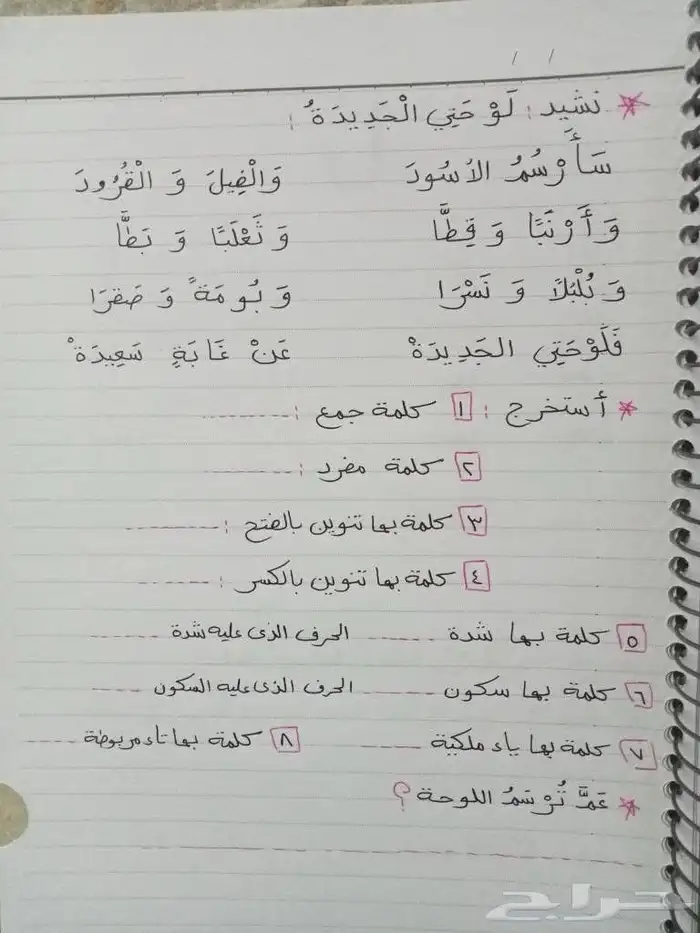 / /
* نشيد : لَوْحَتِي الْجَدِيدَةُ :
سَأَرْسُمُ الأسُودَ وَالْفِيلَ وَ الْقُرُودَ
وَ أَرْنَبًا وَ قِطًّا وَ ثَعْلَبًا وَ بَطًّا
وَ بُلْبُلَا وَ نَسْرَا وَ بُومَةً وَ صَقرَا
فَلَوْحَتِي الجَدِيدَةْ عَنْ غَابَةٍ سَعِيدَةْ
* أستخرج : ١ كلمة جمع : --------
٢ كلمة مفرد : --------
٣ كلمة بها تنوين بالفتح : --------
٤ كلمة بها تنوين بالكسر : --------
٥ كلمة بها شدة -------- الحرف الذى عليه شدة --------
٦ كلمة بها سكون -------- الحرف الذى عليه السكون --------
٧ كلمة بها ياء ملكية -------- ٨ كلمة بها تاء مربوطة --------
* عَمَّ تُرْسَمُ اللوحة ؟
--------
حراج